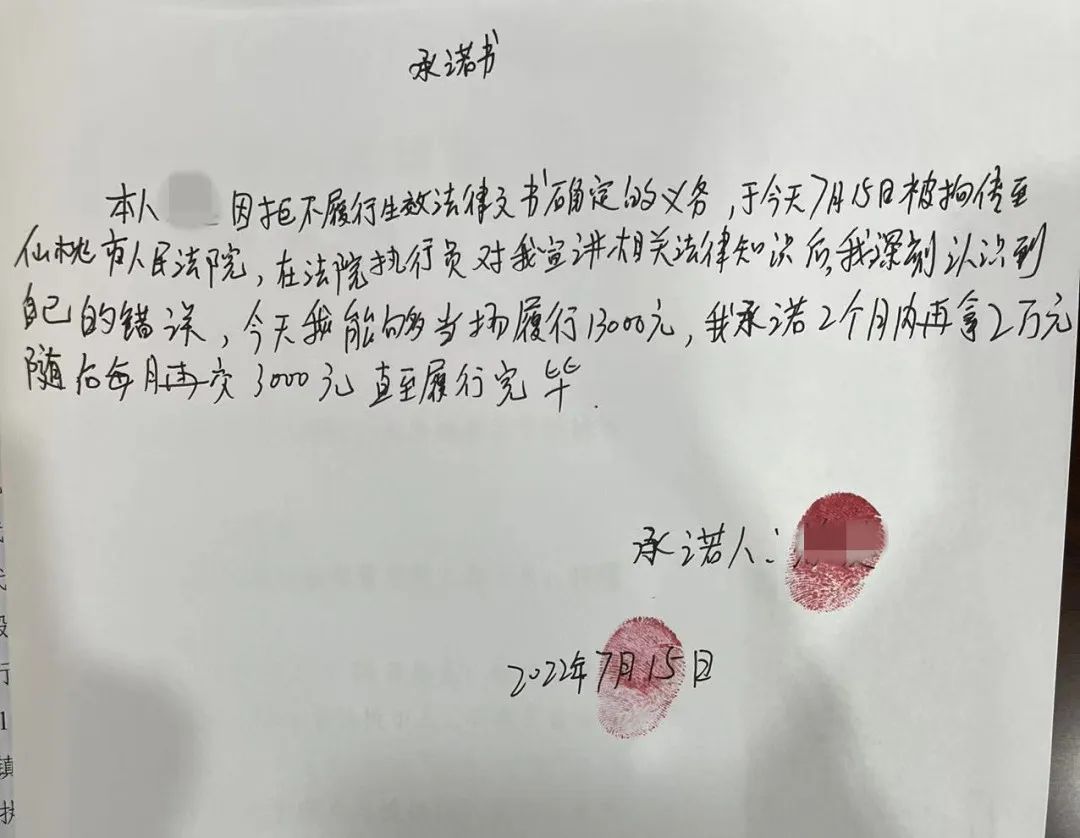 承诺书
本人 因拒不履行生效法律文书确定的义务，于今天7月15日被拘传至
仙桃市人民法院，在法院执行员对我宣讲相关法律知识后，我深刻认识到
自己的错误，今天我能够当场履行13000元，我承诺2个月内再拿2万元
随后每月再交3000元直至履行完毕.
承诺人：
2022年7月15日
行
1
镇
执